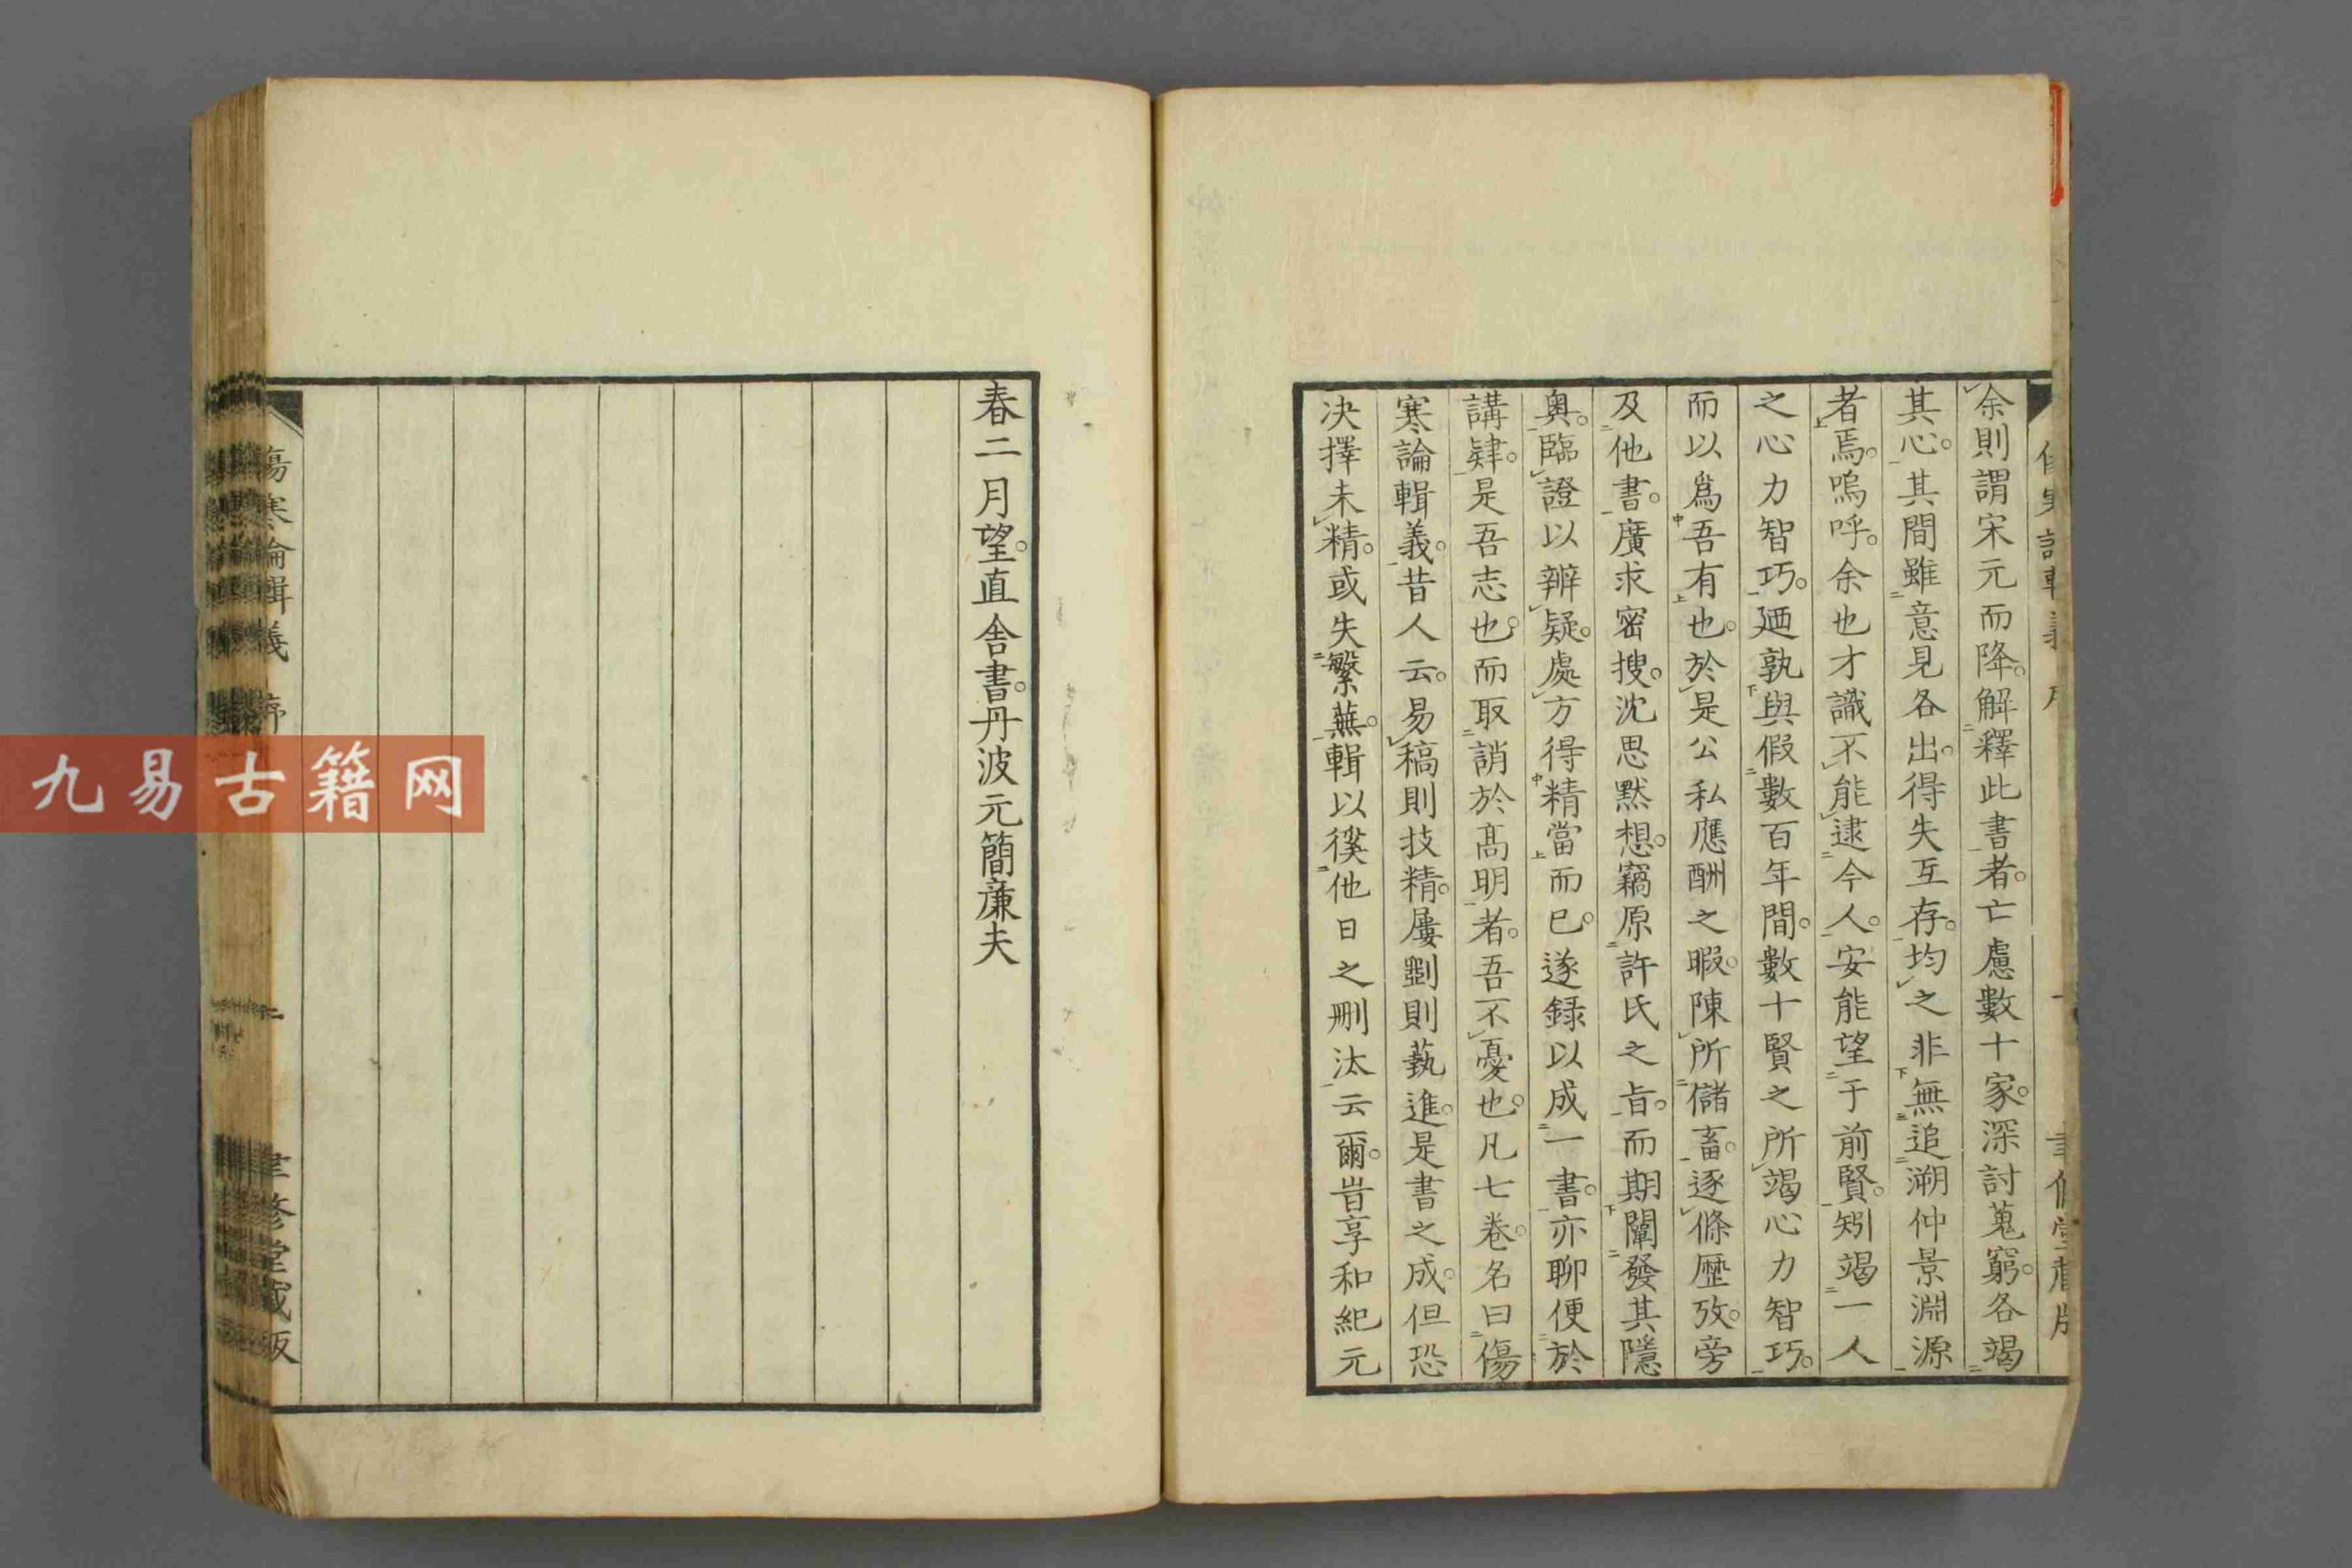 余則謂宋元而降。解釋此書者。亡慮數十家。深討蒐窮。各竭
其心。其間雖意見各出。得失互存。均之非無追溯仲景淵源
者焉。嗚呼。余也才識不能逮今人。安能望于前賢。矧竭一人
之心力智巧。廼孰與假數百年間。數十賢之所竭心力智巧。
而以爲吾有也。於是公私應酬之暇。陳所儲畜。逐條歷攷。旁
及他書。廣求密搜。沈思默想。竊原許氏之旨。而期闡發其隱
奧。臨證以辨疑。處方得精當而已。遂録以成一書。亦聊便於
講肄。是吾志也。而取誚於高明者。吾不憂也。凡七卷。名曰傷
寒論輯義。昔人云。易稿則技精。屢劉則藝進。是書之成。但恐
决擇未精。或失繁蕪。輯以徯他日之刪汰云爾。旹享和紀元
春二月望。直舍書。丹波元簡廉夫
傷寒論輯義 序
二
聿修堂藏版
九易古籍网